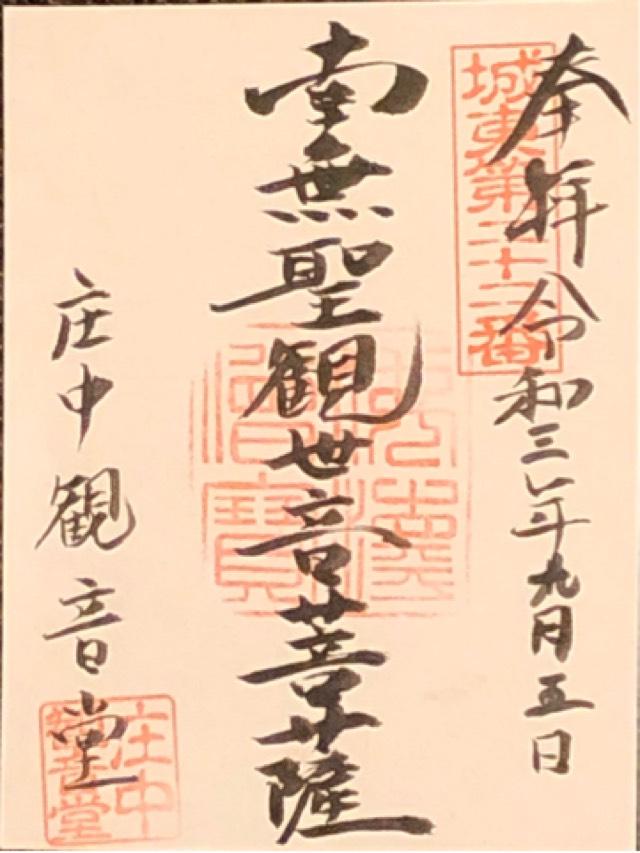 奉拝 令和三年九月五日
城東第二十二番
南無聖観世音菩薩
佛法僧寳
庄中観音堂
庄中観音堂